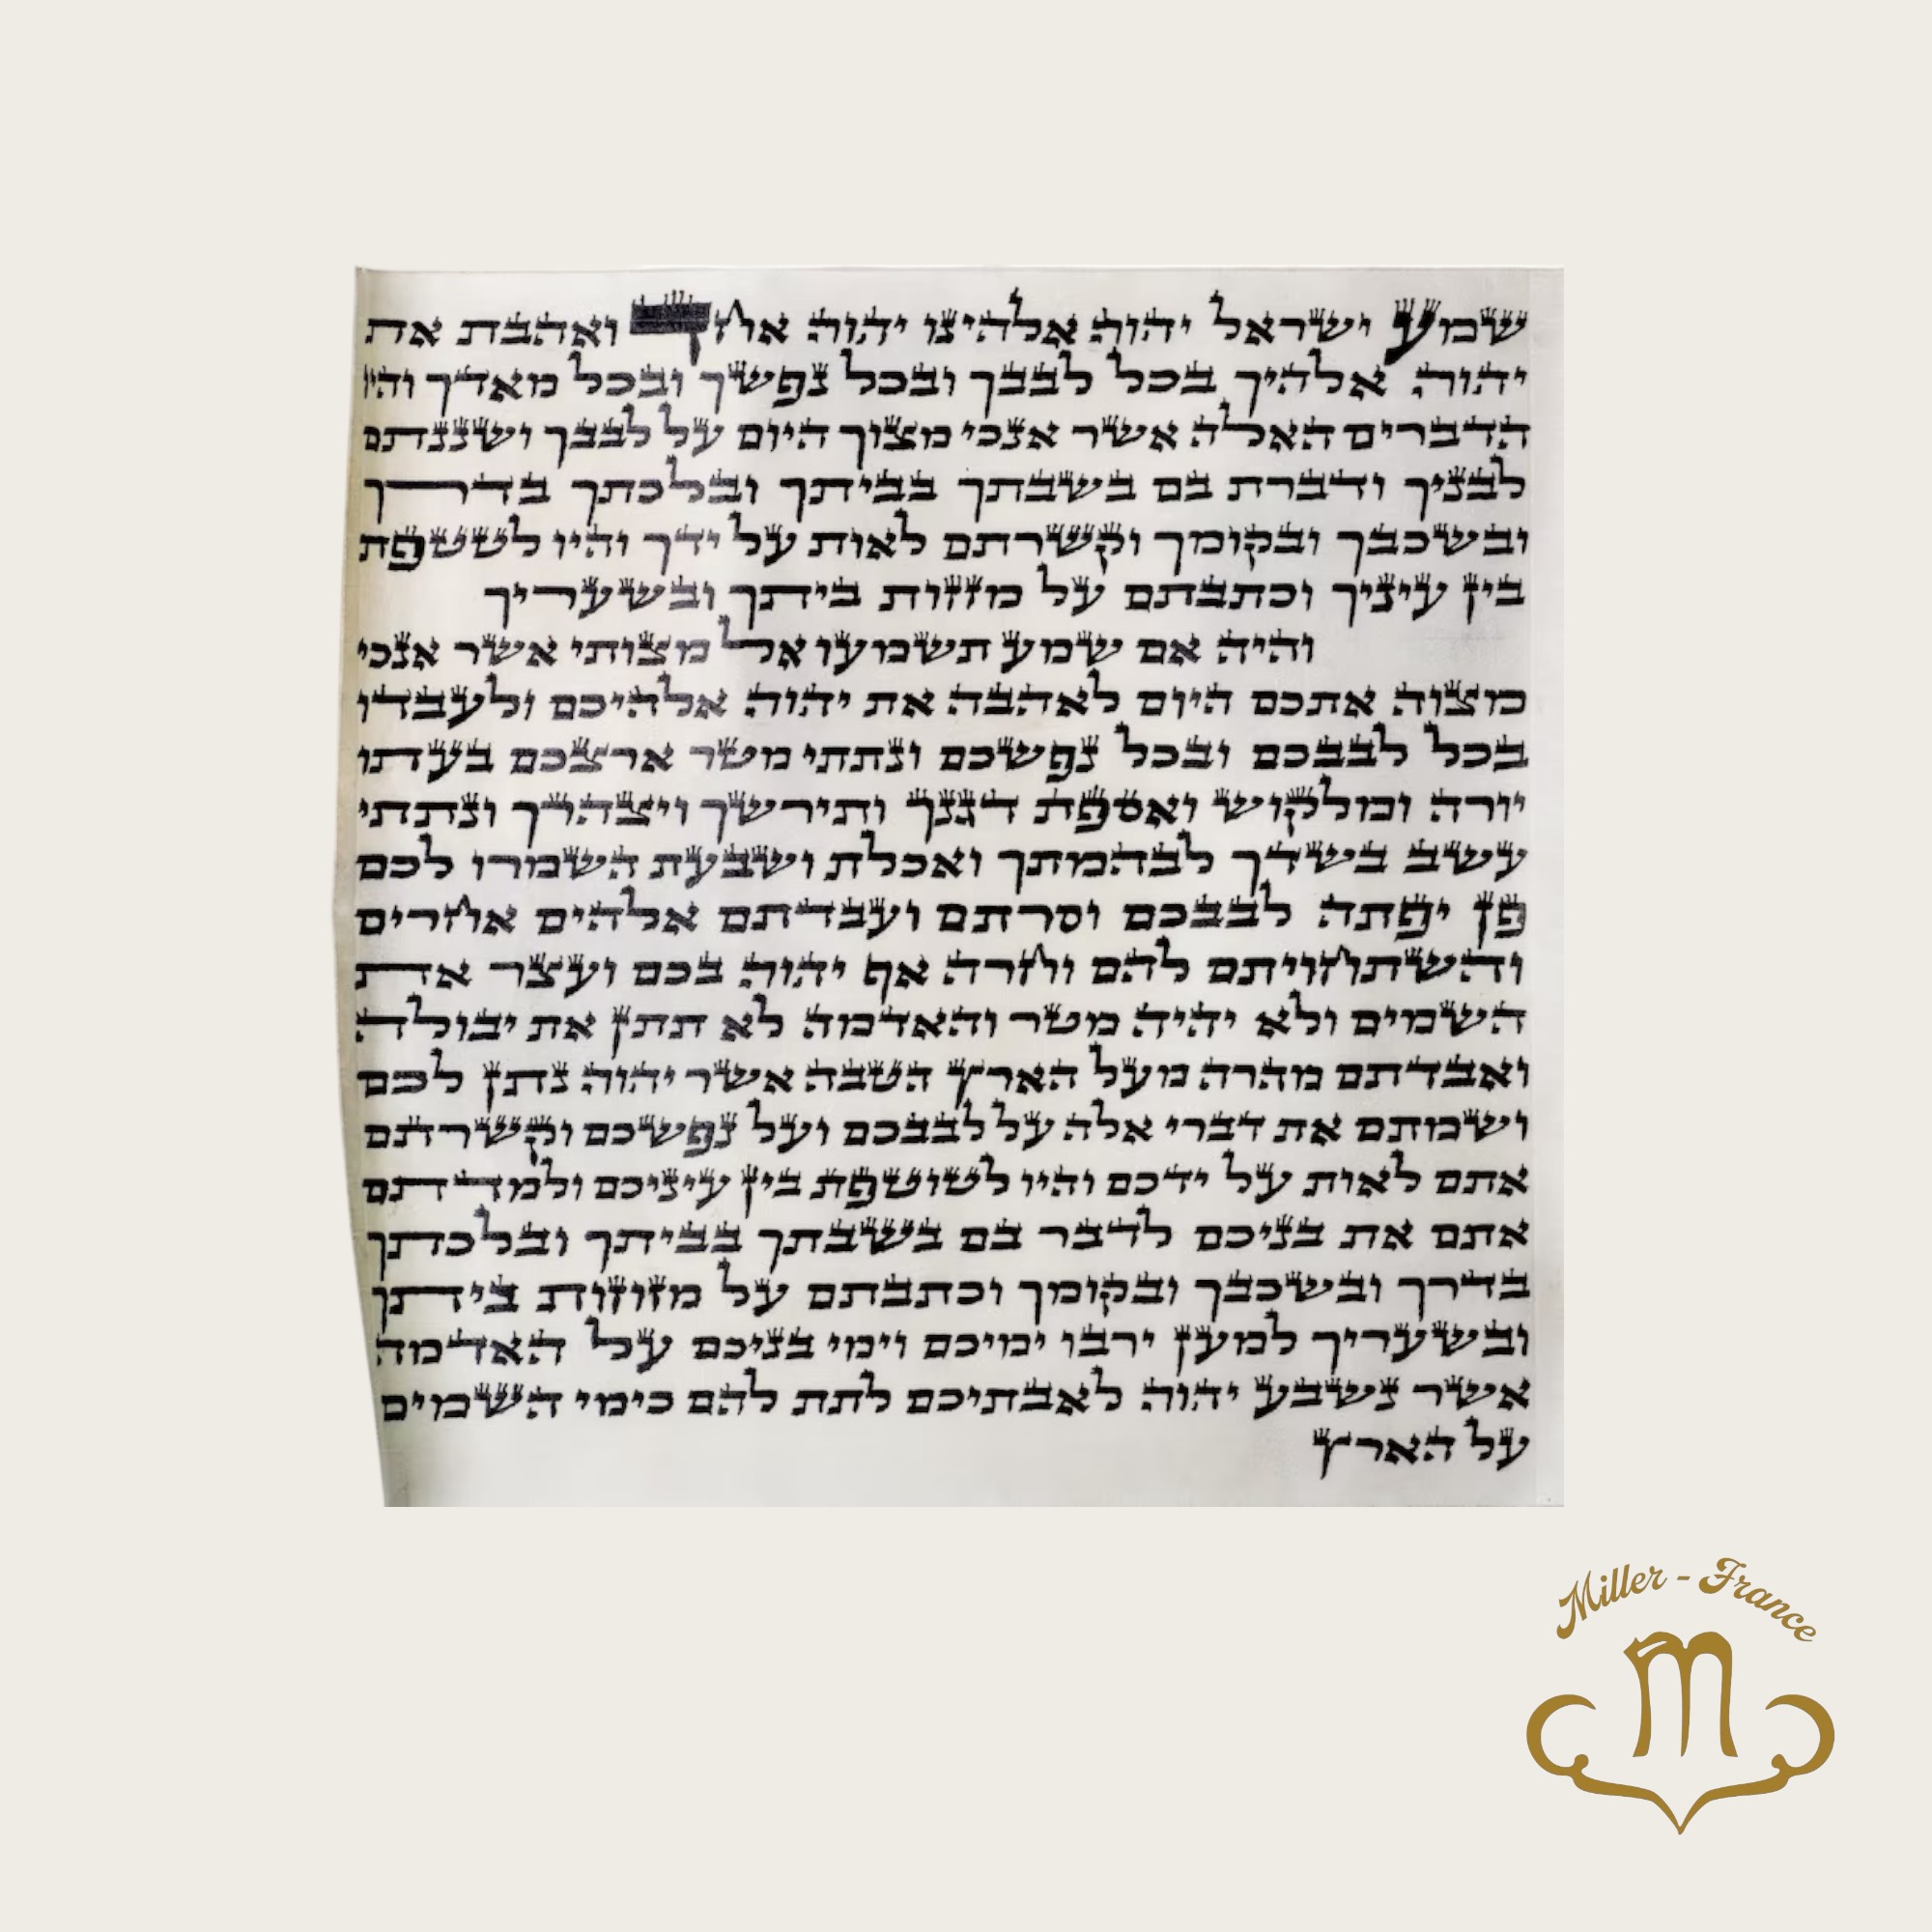 שמע ישראל יהוה אלהינו יהוה אחד ואהבת את
יהוה אלהיך בכל לבבך ובכל נפשך ובכל מאדך והיו
הדברים האלה אשר אנכי מצוך היום על לבבך ושננתם
לבניך ודברת בם בשבתך בביתך ובלכתך בדרך
ובשכבך ובקומך וקשרתם לאות על ידך והיו לטטפת
בין עיניך וכתבתם על מזזות ביתך ובשעריך
והיה אם שמע תשמעו אל מצותי אשר אנכי
מצוה אתכם היום לאהבה את יהוה אלהיכם ולעבדו
בכל לבבכם ובכל נפשכם ונתתי מטר ארצכם בעתו
יורה ומלקוש ואספת דגנך ותירשך ויצהרך ונתתי
עשב בשדך לבהמתך ואכלת ושבעת השמרו לכם
פן יפתה לבבכם וסרתם ועבדתם אלהים אחרים
והשתחויתם להם וחרה אף יהוה בכם ועצר את
השמים ולא יהיה מטר והאדמה לא תתן את יבולה
ואבדתם מהרה מעל הארץ הטבה אשר יהוה נתן לכם
ושמתם את דברי אלה על לבבכם ועל נפשכם וקשרתם
אתם לאות על ידכם והיו לטוטפת בין עיניכם ולמדתם
אתם את בניכם לדבר בם בשבתך בביתך ובלכתך
בדרך ובשכבך ובקומך וכתבתם על מזוזות ביתך
ובשעריך למען ירבו ימיכם וימי בניכם על האדמה
אשר נשבע יהוה לאבתיכם לתת להם כימי השמים
על הארץ
Miller - France
M